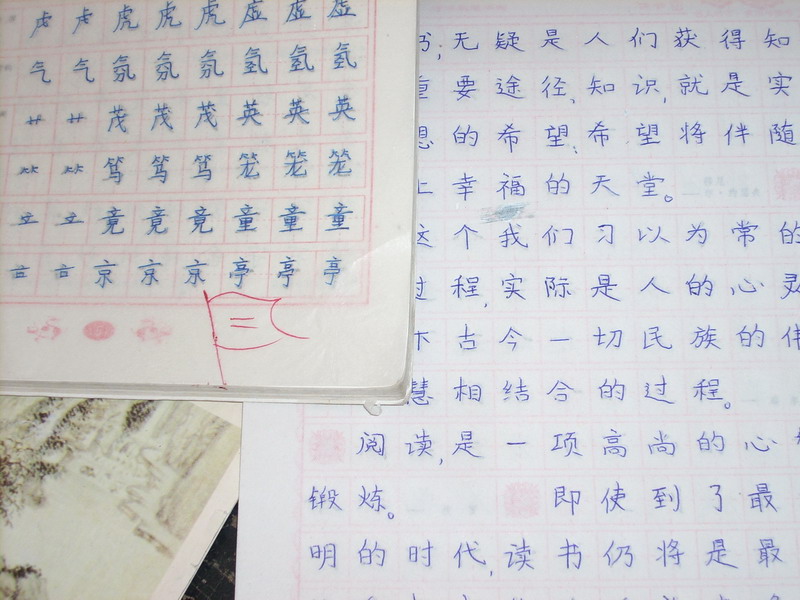 虍 虍 虎 虎 虎 虚 虚 虚
气 气 氛 氛 氛 氢 氢 氢
艹 艹 茂 茂 茂 英 英 英
⺮ ⺮ 笃 笃 笃 笼 笼 笼
立 立 竟 竟 竟 童 童 童
亠口 亠口 京 京 京 亭 亭 亭
二
书,无疑是人们获得知
重要途径,知识,就是实
想的希望;希望将伴随
上幸福的天堂。
这个我们习以为常的
过程,实际是人的心灵
古今一切民族的伟
慧相结合的过程。
阅读,是一项高尚的心
锻炼。 即使到了最
明的时代,读书仍将是最